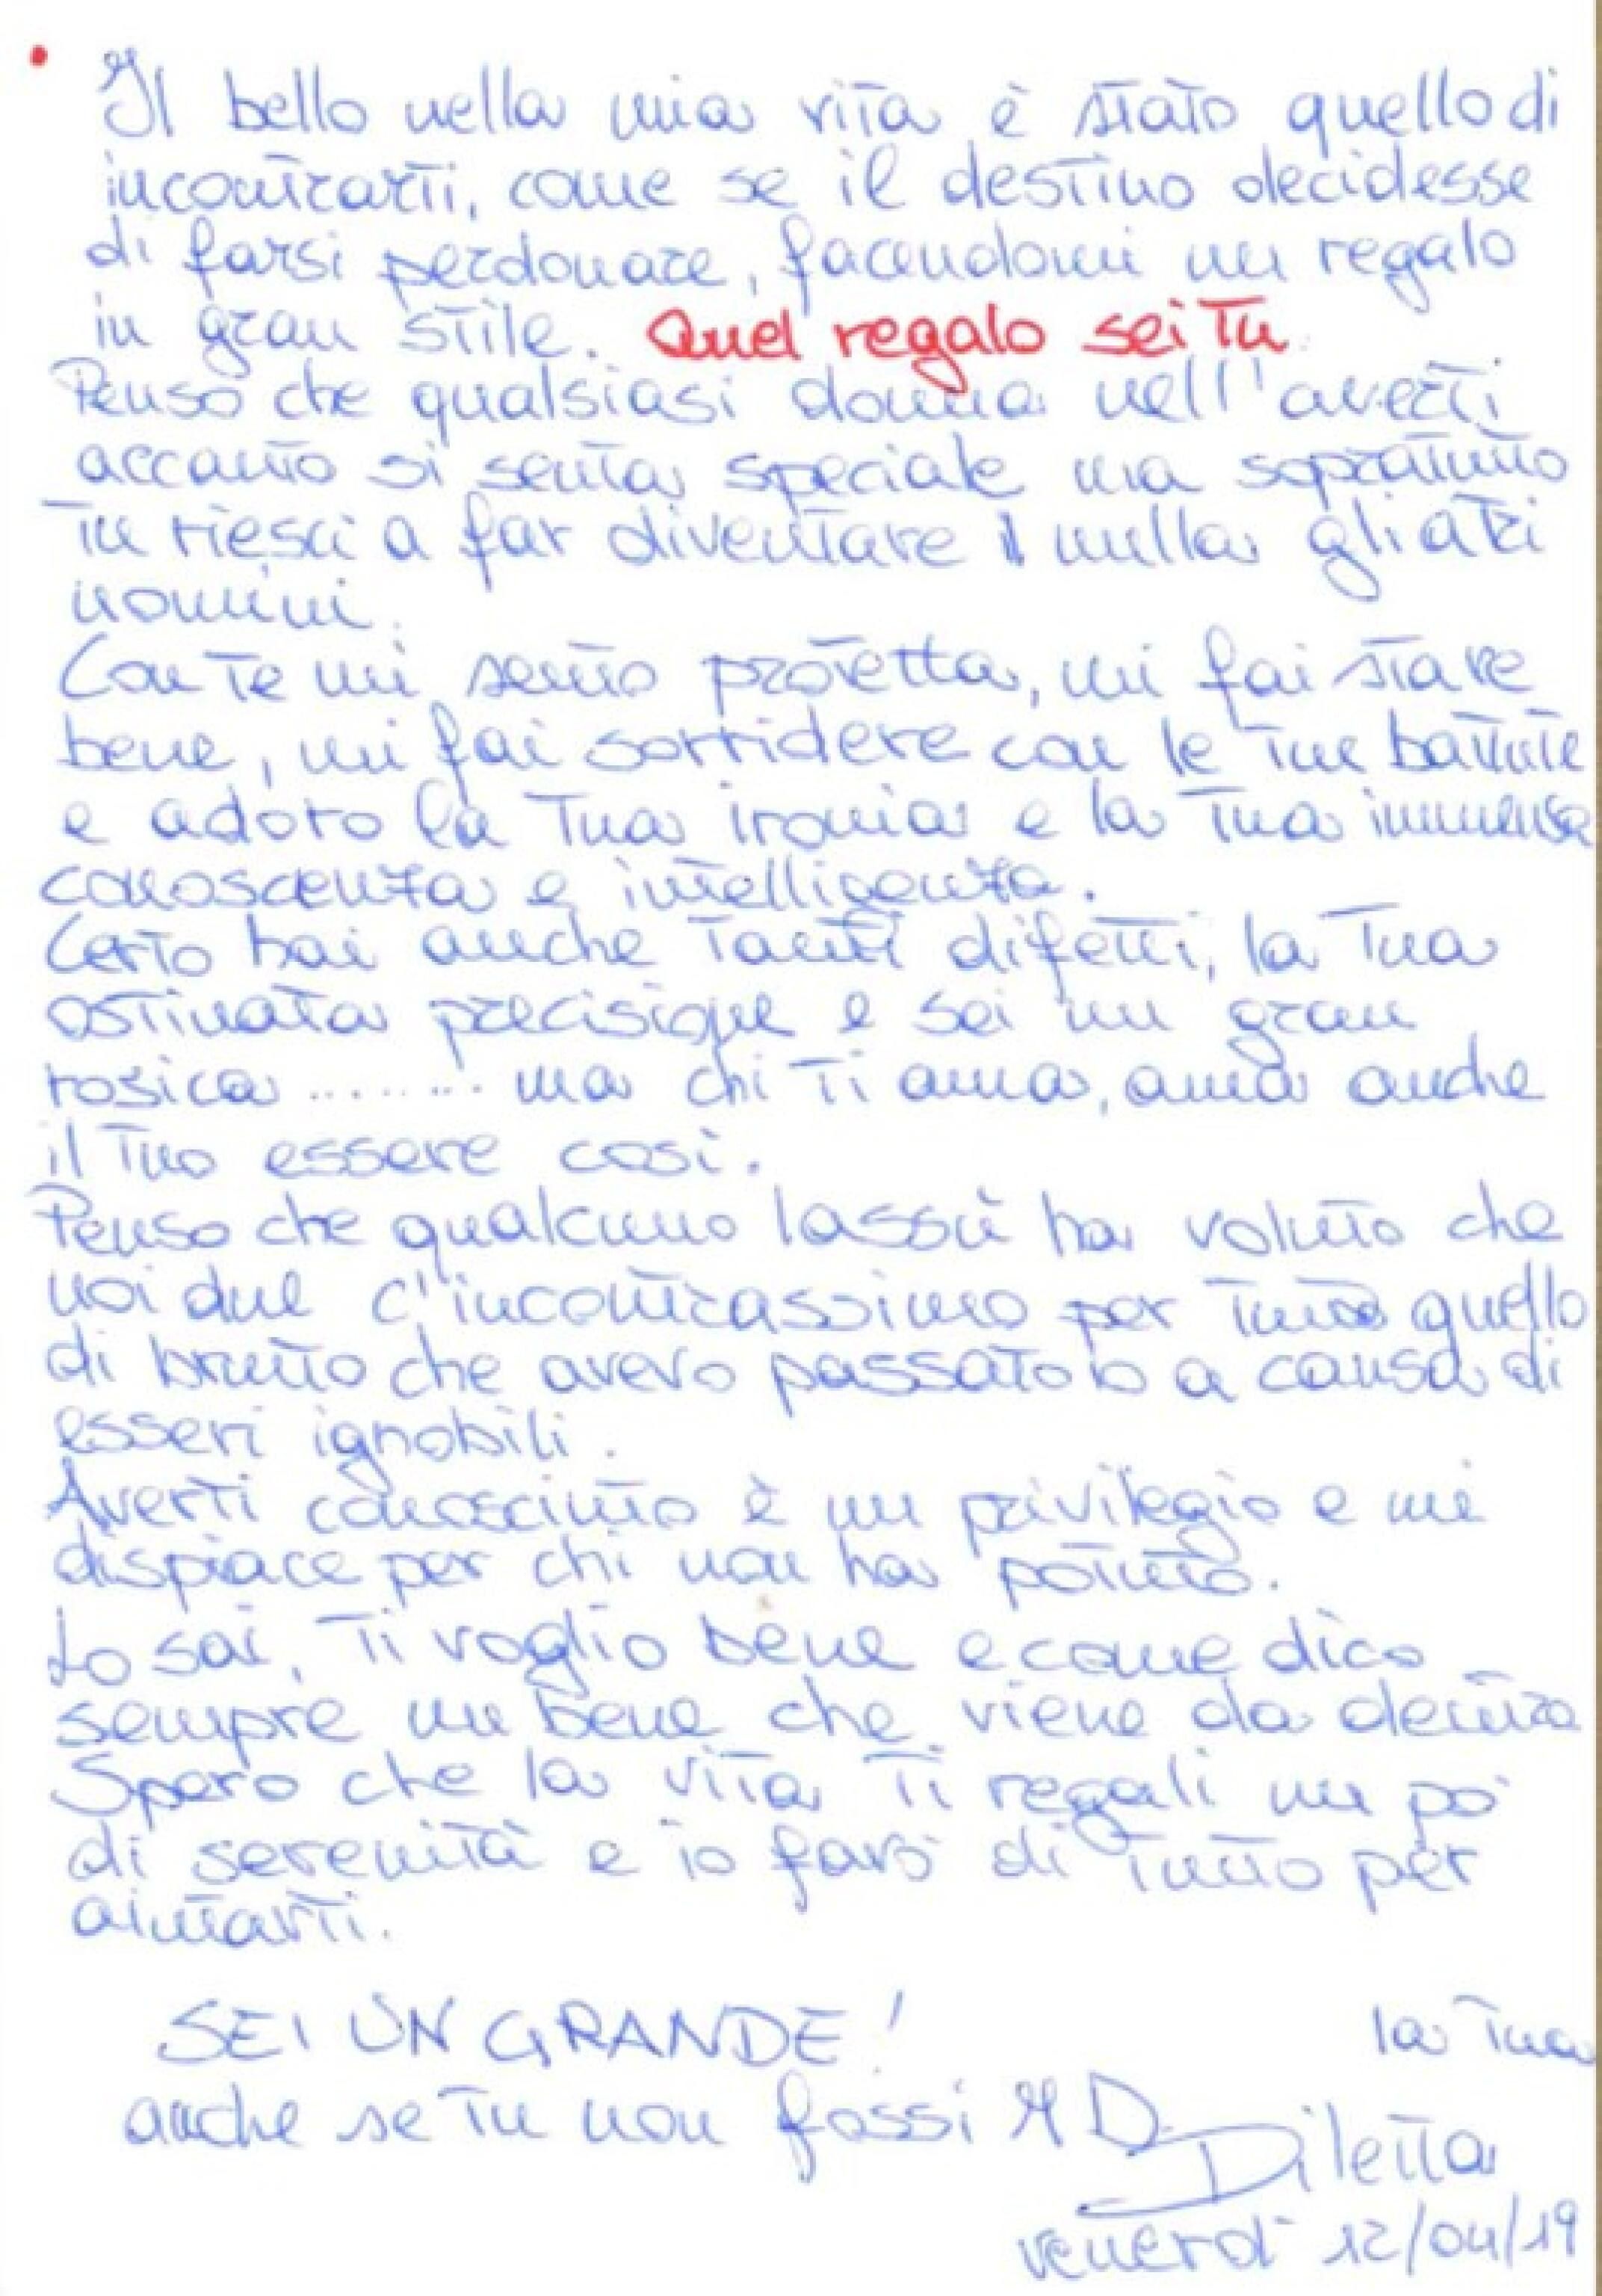 Il bello nella mia vita è stato quello di
incontrarti, come se il destino decidesse
di farsi perdonare, facendomi un regalo
in gran stile. Quel regalo sei tu
Penso che qualsiasi donna nell'averti
accanto si senta speciale ma sopratutto
tu riesci a far diventare nulla gli altri
uomini.
Con te mi sento protetta, mi fai stare
bene, mi fai sorridere con le tue battute
e adoro la tua ironia e la tua immensa
conoscenza e intelligenza.
Certo hai anche tanti difetti, la tua
ostinata precisione e sei un gran
rosica ........ ma chi ti ama, ama anche
il tuo essere così.
Penso che qualcuno lassù ha voluto che
noi due c'incontrassimo per tutto quello
di brutto che avevo passato a causa di
esseri ignobili.
Averti conosciuto è un privilegio e mi
dispiace per chi non ha potuto.
Lo sai, ti voglio bene e come dico
sempre un bene che viene da dentro
Spero che la vita ti regali un pò
di serenità e io farò di tutto per
aiutarti.
SEI UN GRANDE!
la tua
anche se tu non fossi MD
Diletta
venerdì 12/04/19